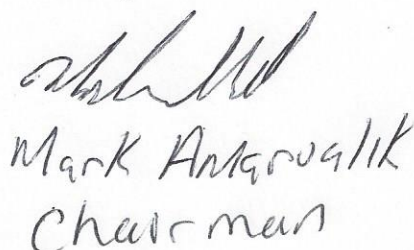 Mark Amarualik
Chairman